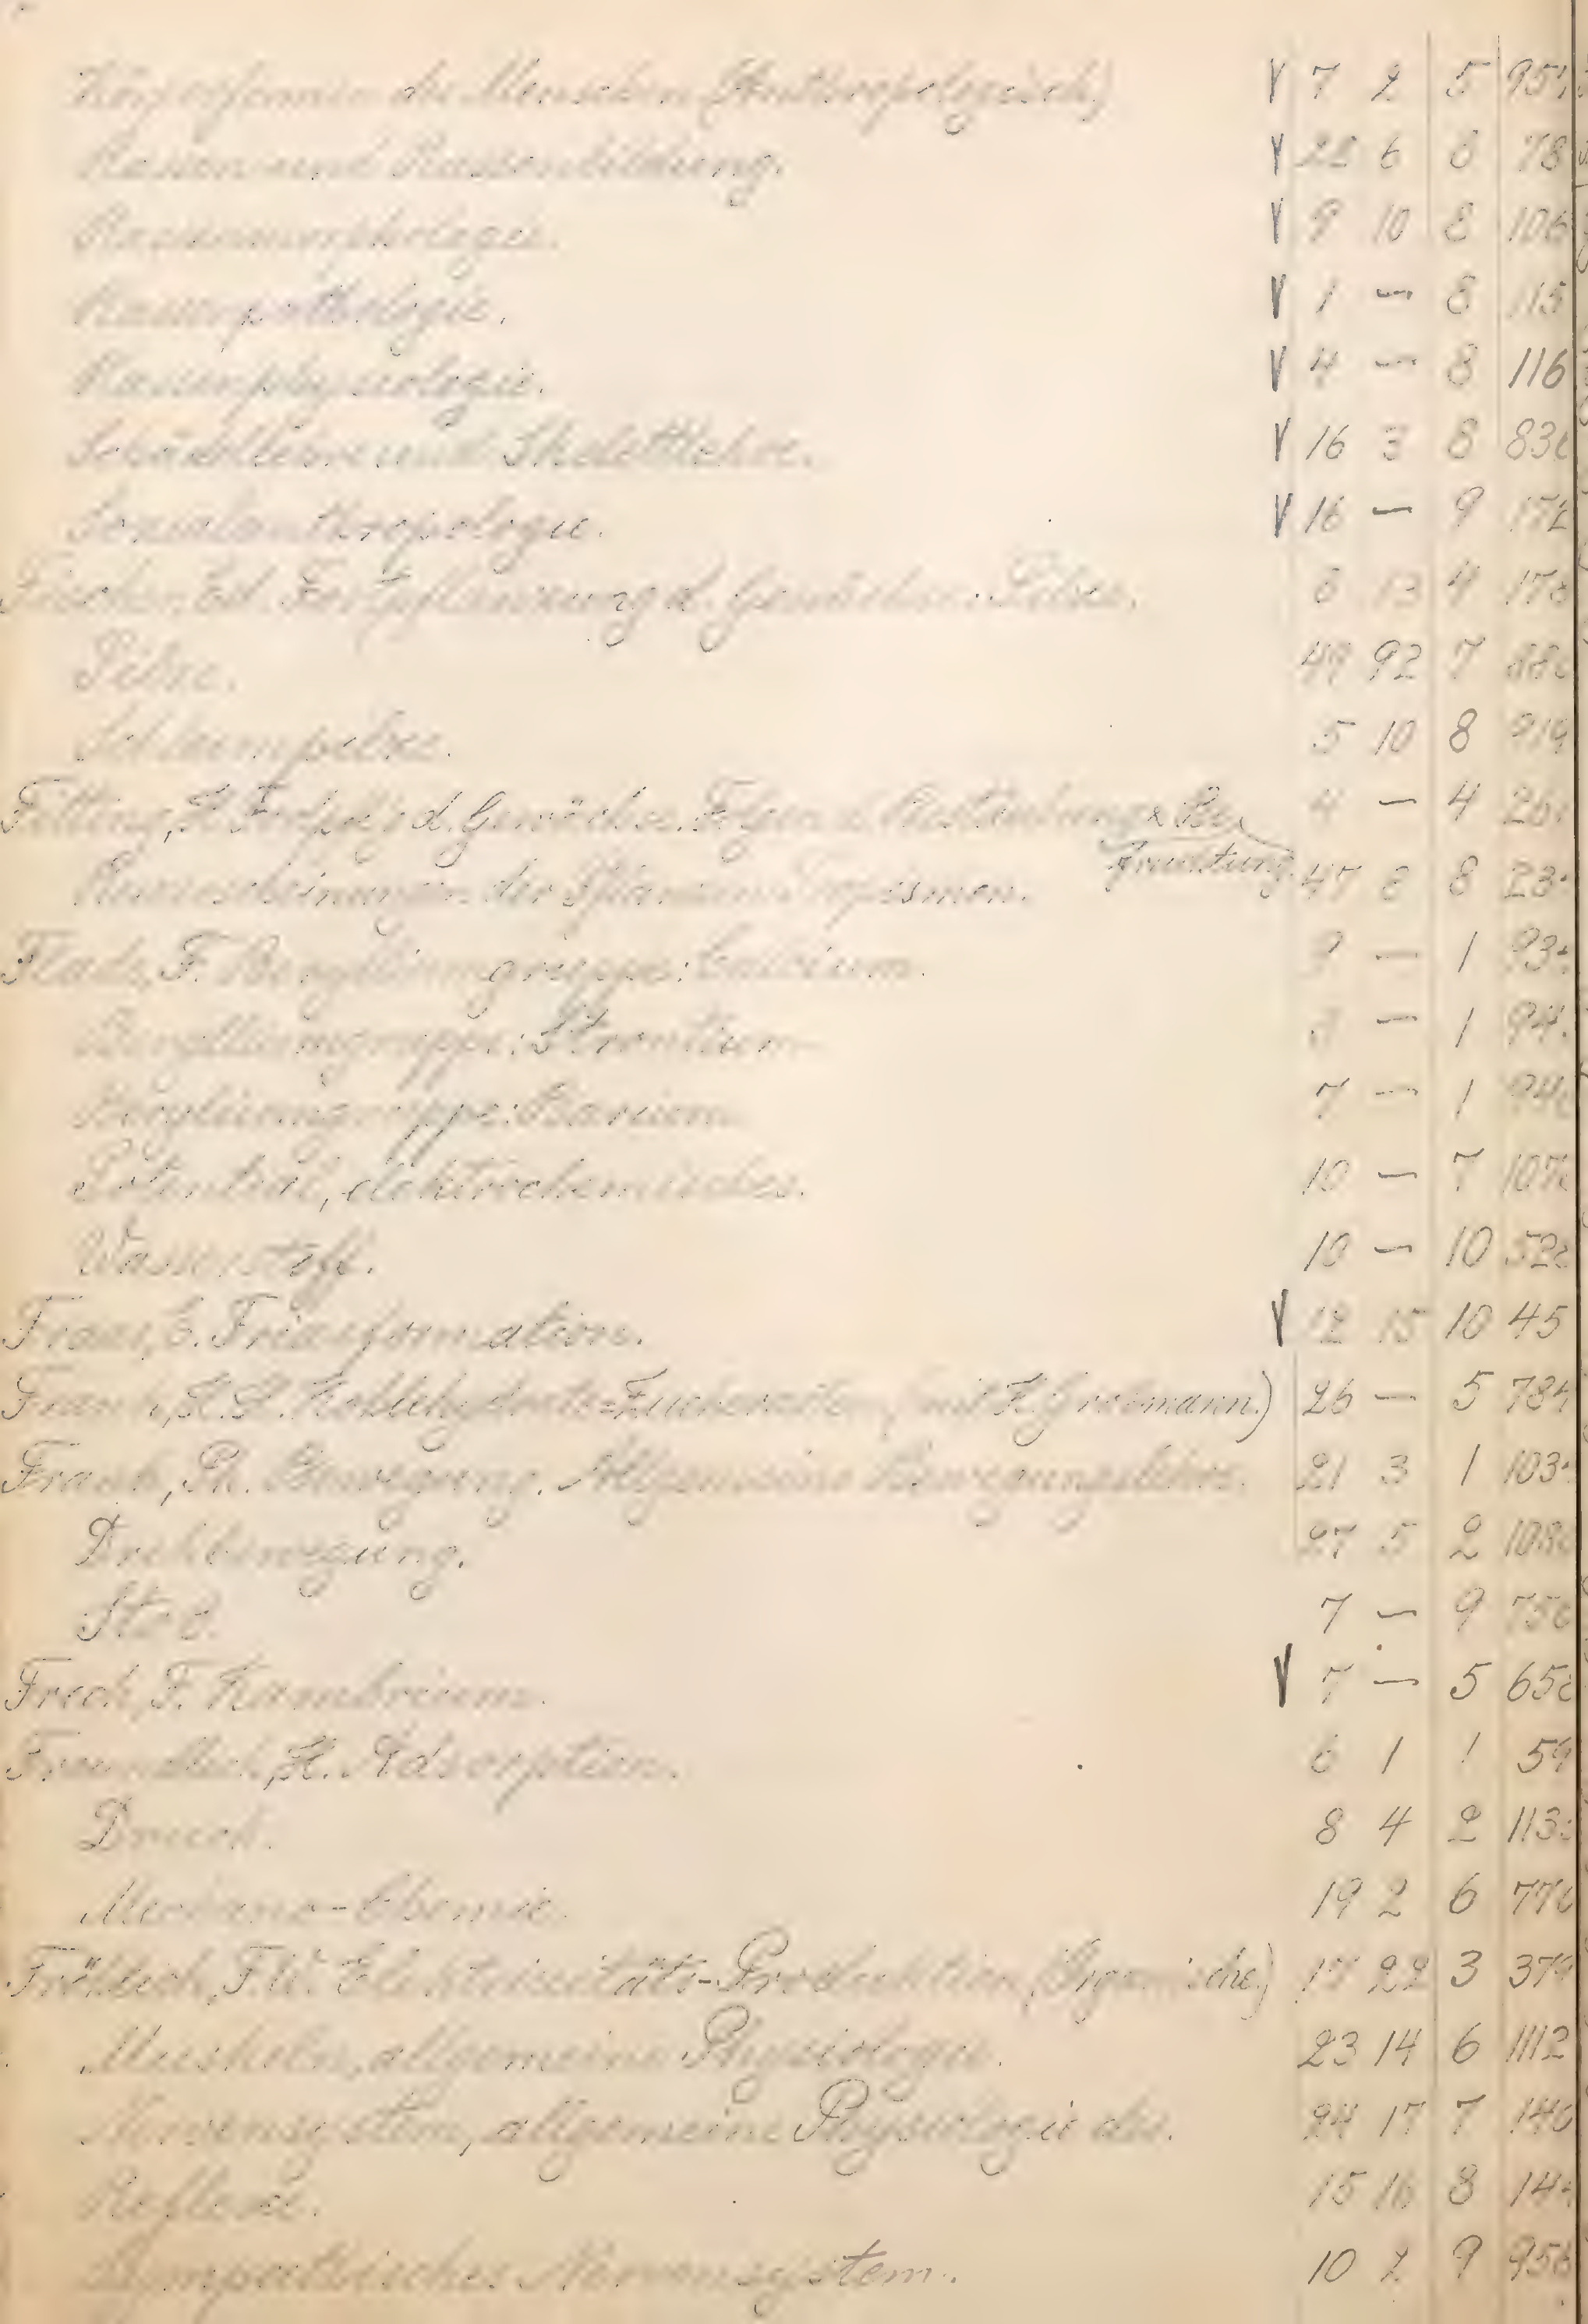 Körperformen des Menschen (Anthropologisch) V 7 2 5 951
Rassen und Rassenbildung. V 22 6 8 78
Rassenmorphologie. V 9 10 8 106
Rassenpathologie. V 1 — 8 115
Rassenphysiologie. V 4 — 8 116
Schädellehre und Skelettlehre. V 16 3 8 83
Sozialanthropologie. V 16 — 9 172
Fischer, Ed. Fortpflanzung d. Gewächse: Pilze. 6 13 4 17
Pilze. 49 92 7 88
Schleimpilze. 5 10 8 919
Fitting, H. Fortpflzg d. Gewächse. Folgen d. Bestäubung & Be- 4 — 4 26
fruchtung.
Reizerscheinungen der Pflanzen: Tropismen. 47 8 8 23
Flade, F. Berylliumgruppe: Calcium. 9 — 1 93
Berylliumgruppe: Strontium 3 — 1 94
Berylliumgruppe: Barium. 7 — 1 94
Potential, elektrochemisches. 10 — 7 107
Wasserstoff. 10 — 10 52
Fraas, E. Triasformation. V 12 15 10 45
H. Kohlehydrate (mit F. Grossmann.) 26 — 5 784
Frank, Ph. Bewegung. Allgemeine Bewegungslehre. 21 3 1 103
Drehbewegung. 27 5 2 108
Stoß. 7 — 9 75
Frech, F. Kambrium. V 7 — 5 65
Freundlich, H. Adsorption. 6 1 1 59
Druck. 8 4 2 113
Mechano-Chemie. 19 2 6 77
Fröhlich, F. W. Elektrizitäts-Produktion (Organische) 17 22 3 379
Muskeln, allgemeine Physiologie. 23 14 6 1112
Nervensystem, allgemeine Physiologie des. 24 17 7 140
Reflexe. 15 16 8 14
Sympathisches Nervensystem. 10 2 9 956